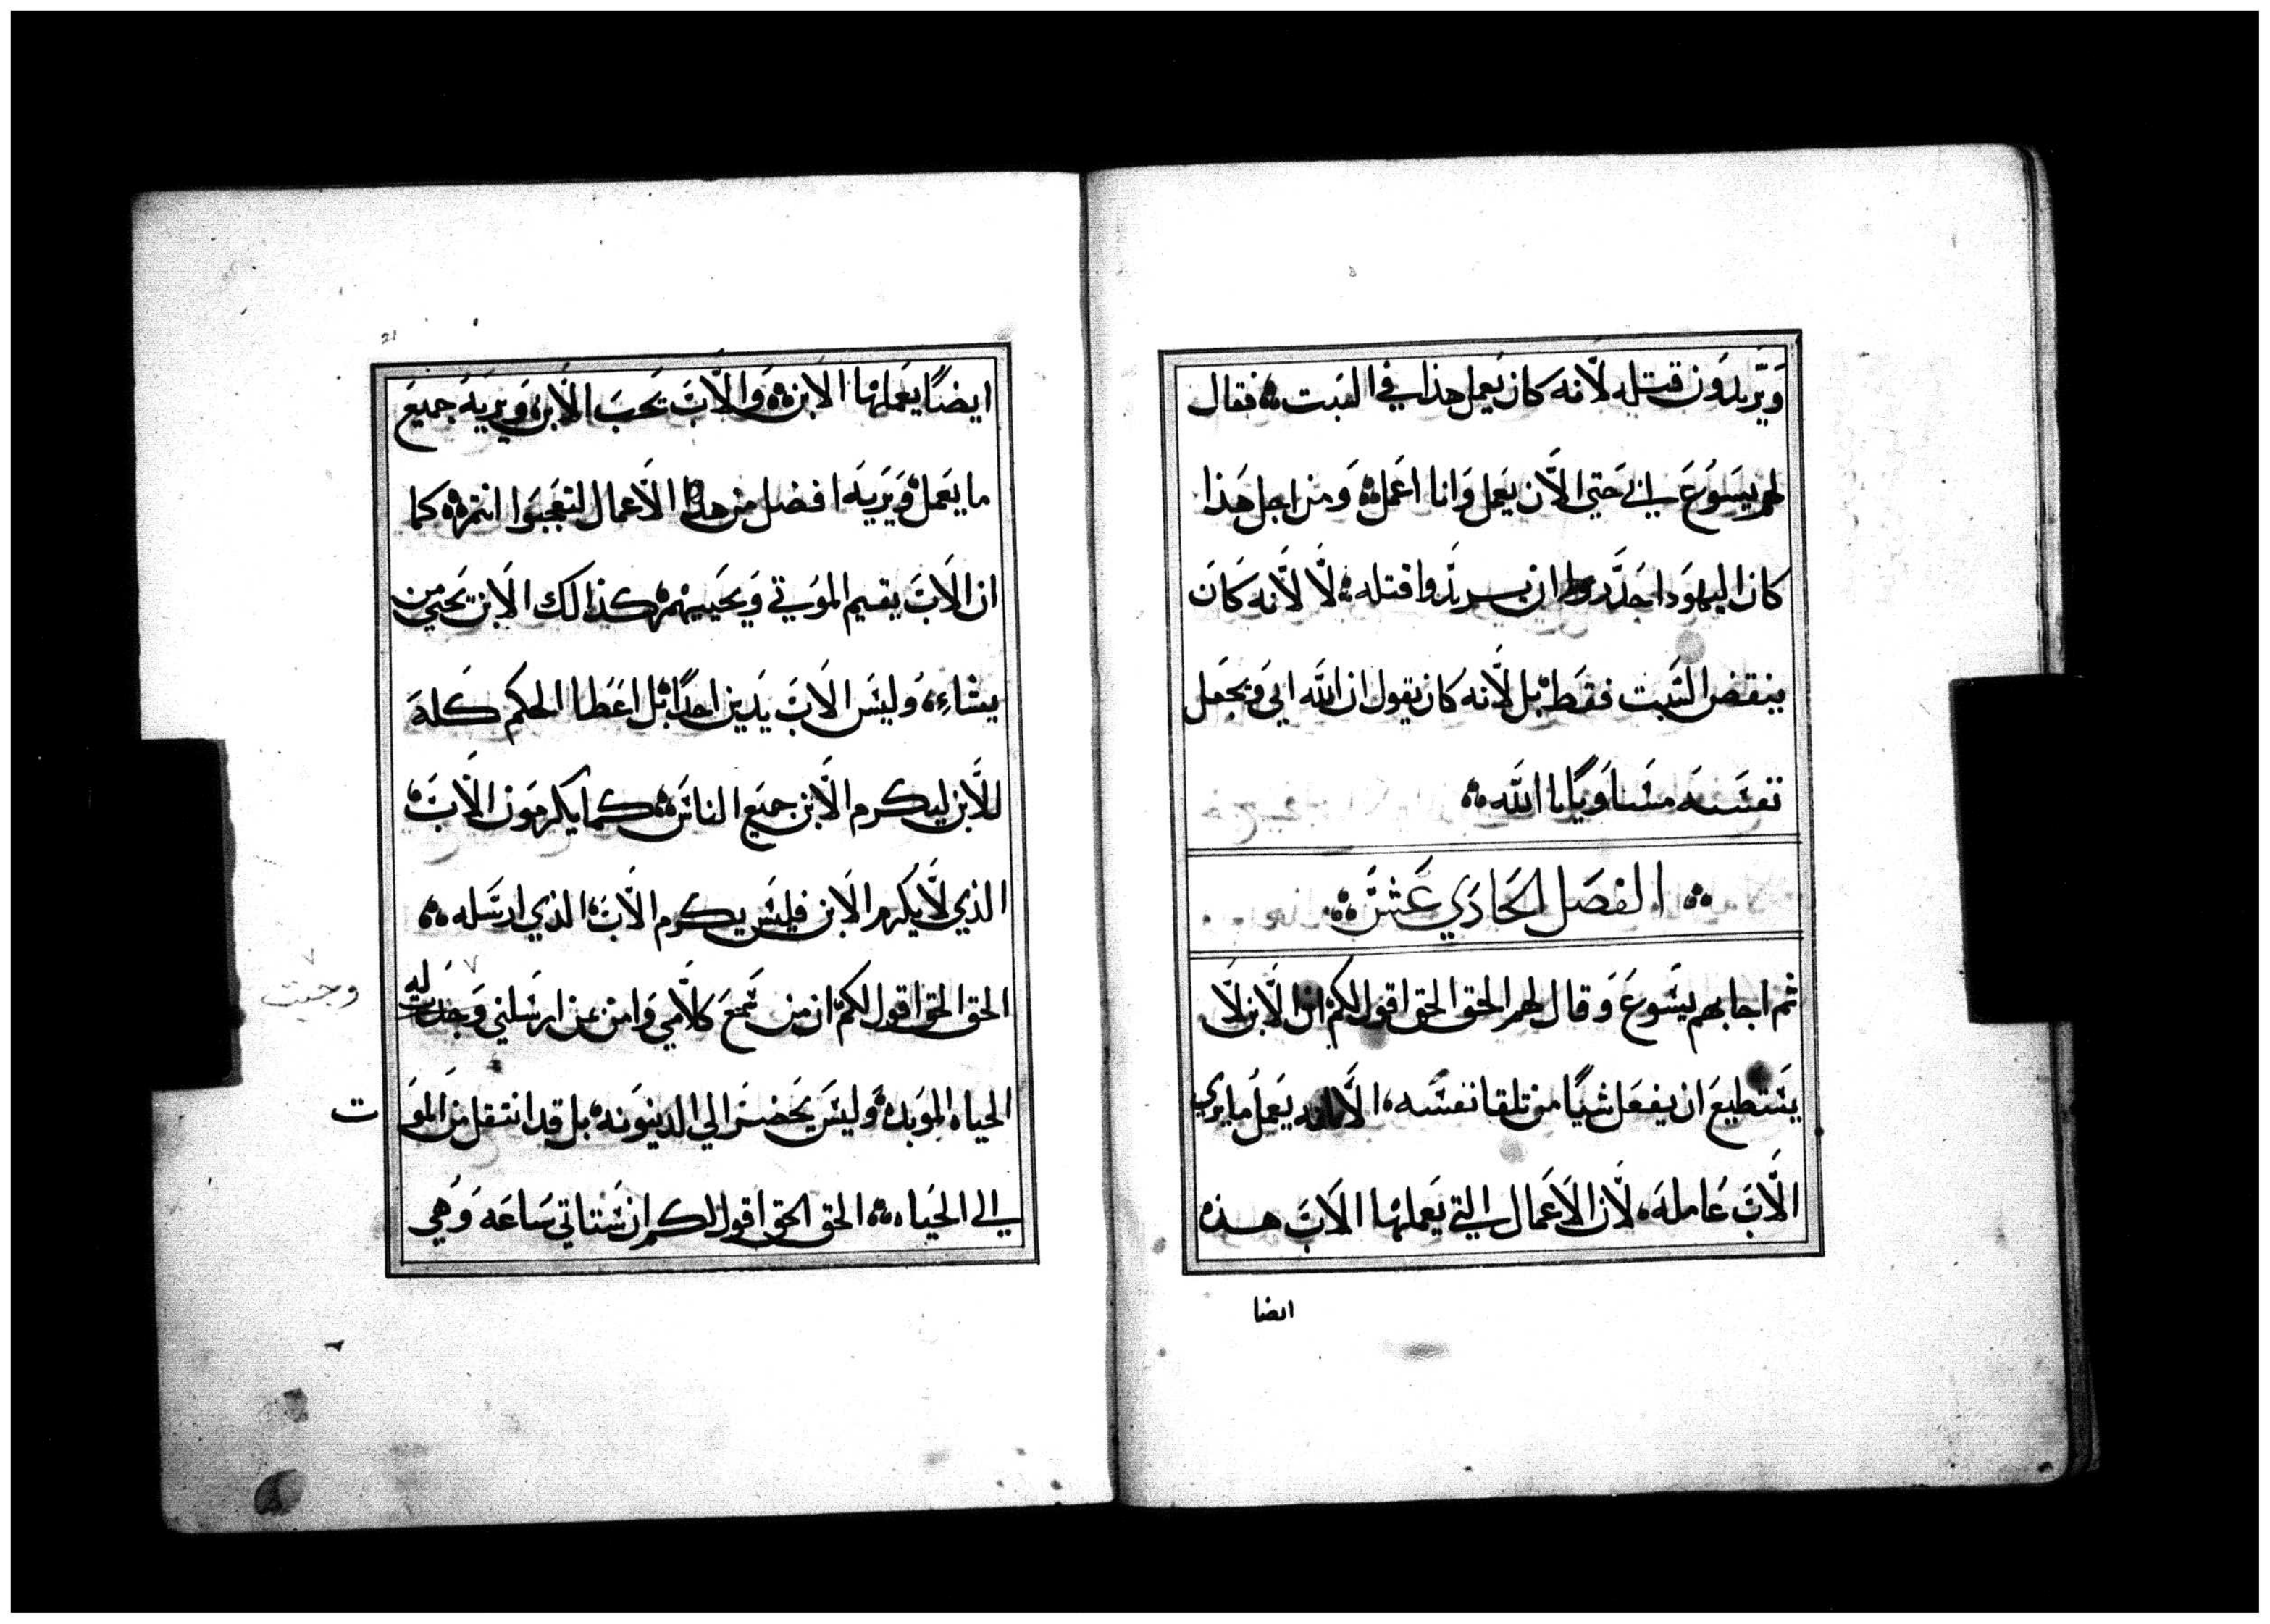 ويريدون قتله لانه كان يعمل هذا في السبت فقال
لهم يسوع ابي حتي الان يعمل وانا اعمل ومن اجل هذا
كان اليهود ان يريدوا قتله لا لانه كان
ينقض السبت فقط بل لانه كان يقول ان الله ابي ويجعل
نفسه مساويا بالله
الفصل الحادي عشر
ثم اجابهم يسوع وقال لهم الحق الحق اقول لكم ان الابن لا
يستطيع ان يفعل شيا من تلقا نفسه الا يعمل ما يري
الاب عامله لان الاعمال التي يعملها الاب هذه
ايضا
21
ايضا يعملها الابن والاب يحب الابن ويريه جميع
ما يعمل ويريه افضل من هذا الاعمال لتعجبوا انتم كما
ان الاب يقيم الموتي ويحييهم كذالك الابن يحيي من
يشاء وليس الاب يدين احدا بل اعطا الحكم كله
للابن ليكرم الابن جميع الناس كما يكرمون الاب
الذي لا يكرم الابن فليس يكرم الاب الذي ارسله
الحق الحق اقول لكم ان من سمع كلامي وامن بمن ارسلني وجبت له
وجبت
الحياه الموبده وليس يحضر الي الدينونه بل قد انتقل من الموت
الي الحياه الحق الحق اقول لكم ان ستاتي ساعه وهي